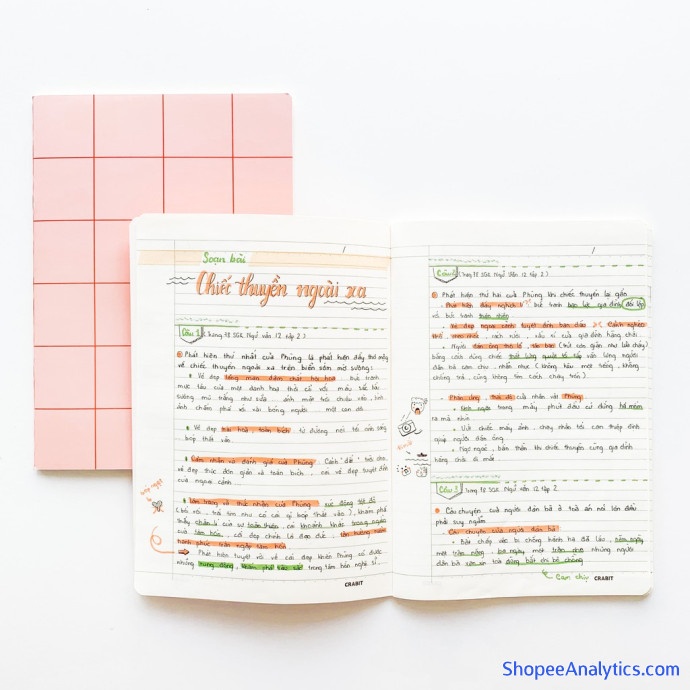 Soạn bài
Chiếc thuyền ngoài xa
Câu 1 (Trang 78 SGK Ngữ văn 12 tập 2)
Phát hiện thứ nhất của Phùng là phát hiện đầy thơ mộng
về chiếc thuyền ngoài xa trên biển sớm mờ sương:
Vẻ đẹp tiếng màu đậm chất hội hoạ bức tranh
mực tàu của một danh hoạ thời cổ với màu sắc bầu
sương mù trắng như sữa ... ánh mặt trời chiếu vào, hình
ảnh chấm phá vài bóng người một con dơi
Vẻ đẹp hài hoà, toàn bích từ đường nét tới ánh sáng
bóp thắt vào
Cảm nhận và đánh giá của Phùng Cảnh "đắt" trời cho,
vẻ đẹp thực đơn giản và toàn bích, cái vẻ đẹp tuyệt đỉnh
của ngoại cảnh
Tâm trạng và thức nhận của Phùng xúc động tột độ
(bối rối, trái tim như có cái gì bóp thắt vào), khám phá
thấy chân lí của sự toàn thiện, cái khoảnh khắc trong ngần
của tâm hồn, cái đẹp chính là đạo đức, tận hưởng cảm
hạnh phúc tràn ngập tâm hồn
Phát hiện tuyệt vời về cái đẹp khiến Phùng có được
những rung động, khám phá sâu sắc trong tâm hồn nghệ sĩ
CRABIT
(Trang 78 SGK Ngữ văn 12 tập 2)
Phát hiện thứ hai của Phùng khi chiếc thuyền lại gần
Phát hiện đầy nghịch lí bạo lực gia đình đối lập
với bức tranh toàn thiện
Vẻ đẹp ngoại cảnh tuyệt đỉnh ban đầu >< Cảnh nghèo
Người đàn ông thô lỗ, tàn bạo
bằng cách dùng chiếc thắt lưng quật tới tấp vào lưng người
đàn bà cam chịu, nhẫn nhục (không kêu một tiếng, không
chống trả, cũng không tìm cách chạy trốn)
Phản ứng thái độ của nhân vật Phùng
Kinh ngạc trong mấy phút đầu cứ đứng há mồm
ra mà nhìn
Vứt chiếc máy ảnh, chạy nhào tới can thiệp định
giúp người đàn ông
Ngơ ngác, bần thần khi chiếc thuyền cùng gia đình
hàng chài đi mất
Câu 3 Trang 78 SGK Ngữ văn 12 tập 2
Câu chuyện của người đàn bà ở toà án nói lên điều
phải suy ngẫm
Câu chuyện của người đàn bà
Bất chấp việc bị chồng đánh bà đã lâu, năm ngày
một trận nặng, ba ngày một trận nhẹ nhưng người
đàn bà van xin toà đừng bắt chị bỏ chồng
Cam chịu
CRABIT
ShopeeAnalytics.com